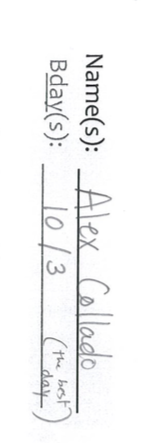 Name(s): Alex Collado
Bday(s): 10/3 (the best day)